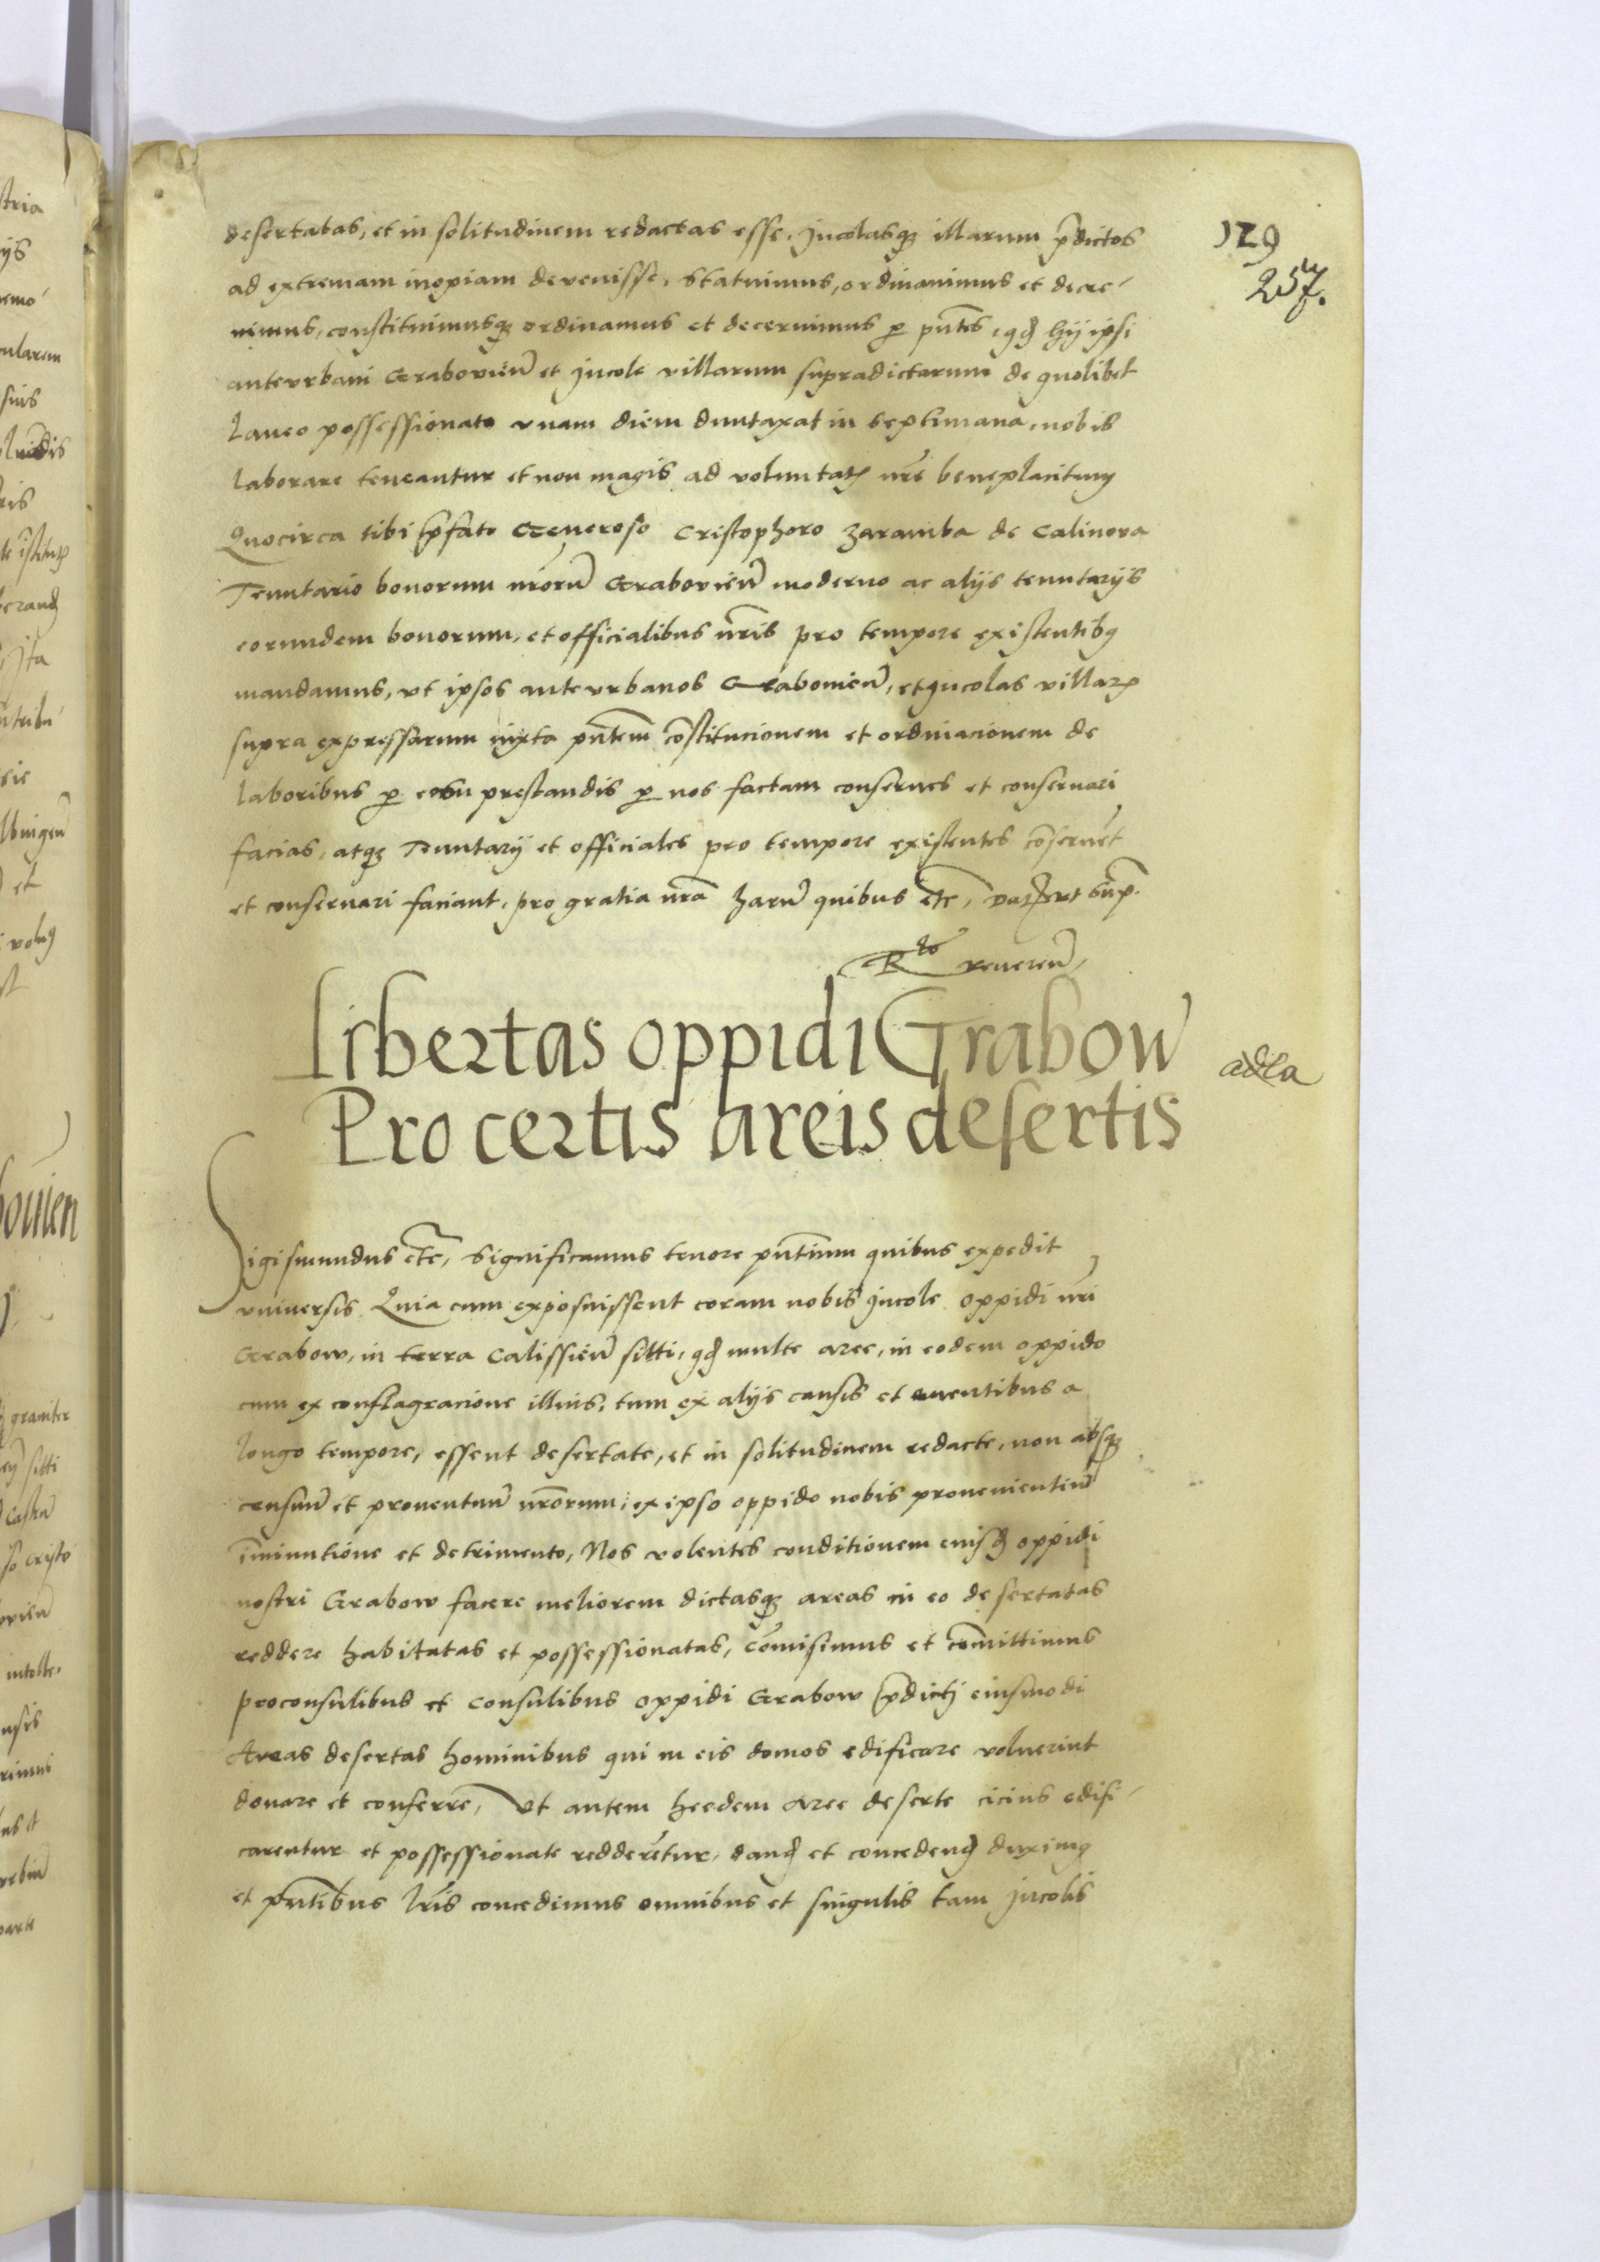 129
257.
desertatas, et in solitudinem redactas esse. Incolasqz illarum p̄dictos
ad extremam inopiam devenisse. Statuimus, ordinavimus et decre-
vimus, constituimusqz ordinamus et decernimus p pn̄tes, qd hij ipsi
anteurbani Grabovien̄ et Incole villarum supradictarum de quolibet
laneo possessionato unam diem duntaxat in septimana, nobis
laborare teneantur et non magis ad voluntatē nrē beneplacitum
Quocirca tibi p̄fato Generoso Cristophoro Zaramba de Calinova
Tenutario bonorum nrōrū Grabovien̄ moderno ac alijs tenutarijs
eorundem bonorum, et officialibus nr̄is pro tempore existentibq
mandamus, ut ipsos anteurbanos Grabovien̄, et Incolas villarz
supra expressarum iuxta pn̄tem cōstitucionem et ordinacionem de
laboribus p eosu prestandis p nos factam conserves et conservari
facias, atqz Tenutarij et officiales pro tempore existentes cōservēt
et conservari faciant, pro gratia nrā harū quibus etc, Datz ut sup̄.
Rto reveren̄,
Libertas oppidi Grabow
Pro certis areis desertis
Sigismundus etc, Significamus tenore pn̄tium quibus expedit
universis. Quia cum exposuissent coram nobis Incole oppidi nr̄i
Grabow, in terra Calissien̄ sitti, qd multe aree, in eodem oppido
cum ex conflagracione illius, tum ex alijs causis et eventibus a
longo tempore, essent desertate, et in solitudinem redacte, non absqz
censuū et proventuū nrōrum, ex ipso oppido nobis provenientiū
īminutione et detrimento, Nos volentes conditionem eiusd oppidi
nostri Grabow facere meliorem dictasqz areas in eo desertatas
reddere habitatas et possessionatas, cōmisimus et cōmittimus
proconsulibus et consulibus oppidi Grabow p̄dicti eiusmodi
Areas desertas hominibus qui in eis domos edificare voluerint
donare et conferre, Ut autem heedem Aree deserte cicius edifi-
carentur et possessionate redderētur, dand et concedend duximq
et pn̄tibus lr̄is concedimus omnibus et singulis tam Incolis